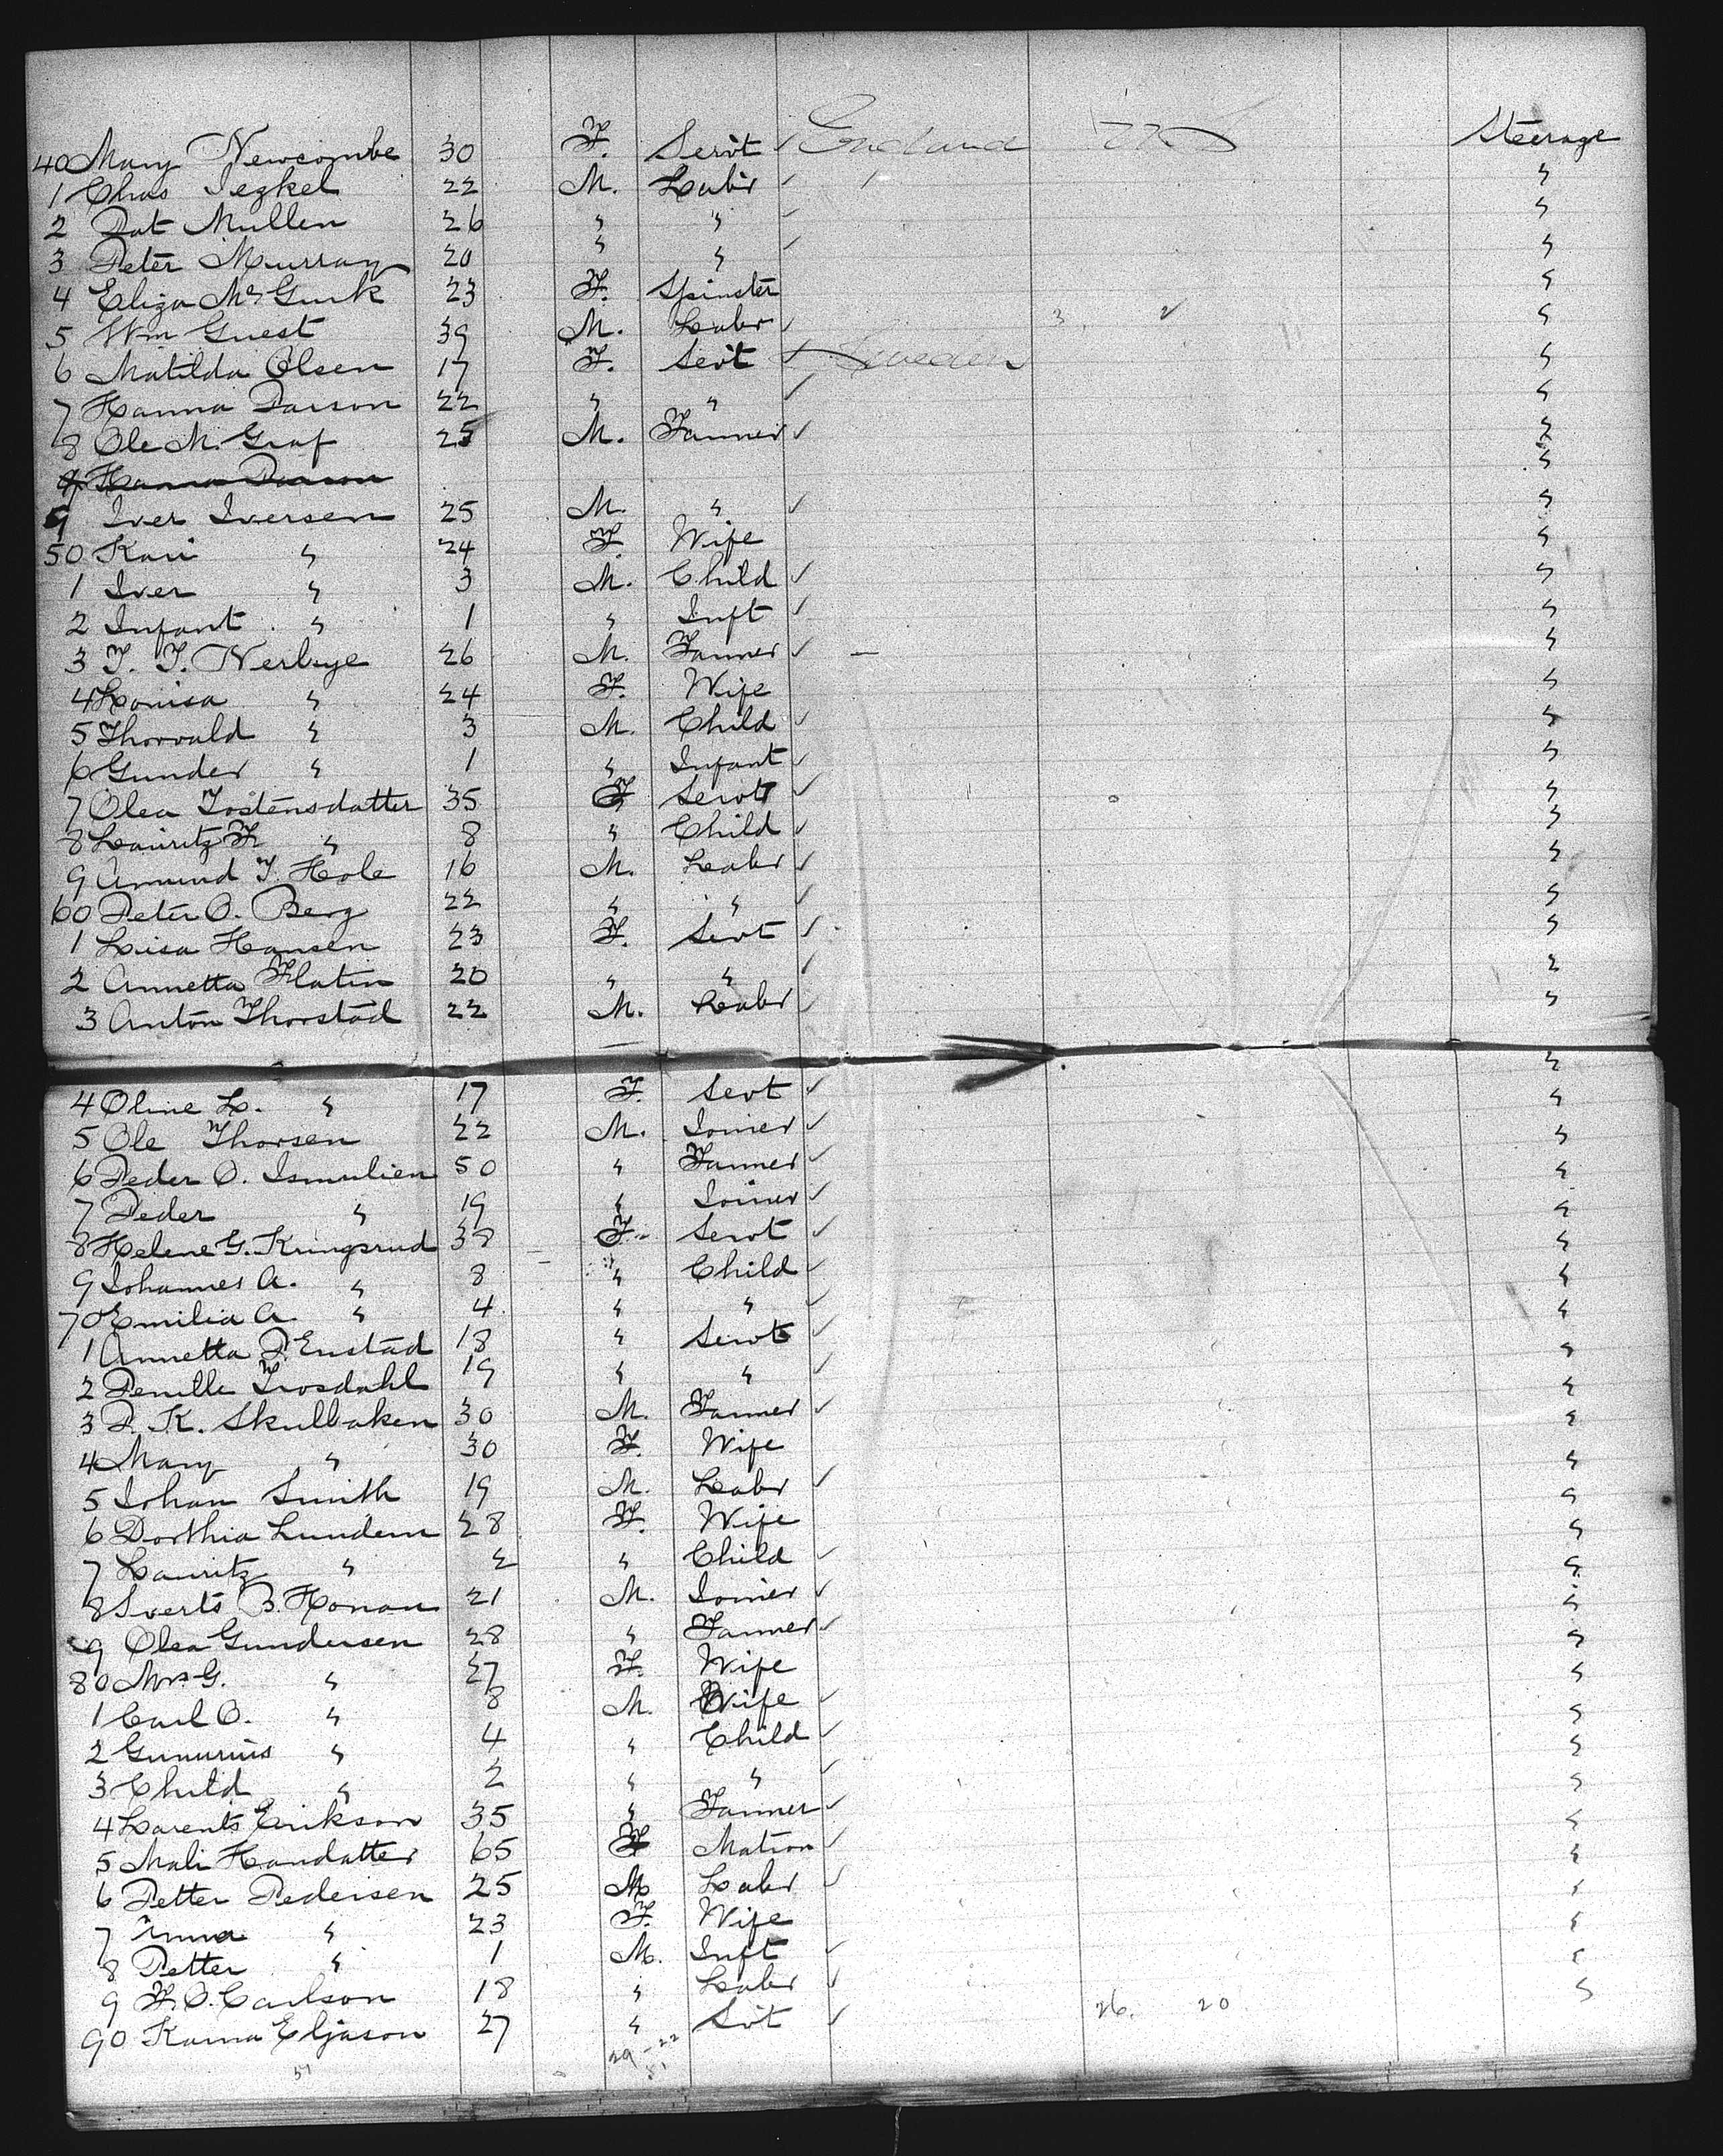 40 Mary Newcombe 30 F. Servt ✓ England U S Steerage
1 Chas 22 M. Labr ✓ "
2 Pat Mullen 26 " " ✓ "
3 Peter Murray 20 " " ✓ "
4 Eliza McGurk 23 F. Spinster "
5 Wm Guest 39 M. Labr ✓ 3. ✓ "
6 Matilda Olsen 17 F. Servt ✓ Sweden "
7 Hanna Parson 22 " " ✓ "
8 Ole M. Graf 25 M. Farmer ✓ "
9 Hanna Parson "
9 Iver Iversen 25 M. " ✓ "
50 Kari " 24 F. Wife "
1 Iver " 3 M. Child ✓ "
2 Infant " 1 " Inft ✓ "
3 T. T. Nerbye 26 M. Farmer ✓ "
4 Louisa " 24 F. Wife "
5 Thorvald " 3 M. Child ✓ "
6 Gunder " 1 " Infant ✓ "
7 Olea Tostensdatter 35 F Servt ✓ "
8 Lauritz F. " 8 " Child ✓ "
9 Amund T. Hole 16 M. Labr ✓ "
60 Peter O. Berg 22 " " ✓ "
1 Lisa Hansen 23 F. Servt ✓ "
2 Annetta Flatin 20 " " ✓ "
3 Anton Thorstad 22 M. Labr ✓ "
4 Oline L. " 17 F. Servt ✓ "
5 Ole Thorsen 22 M. Joiner ✓ "
6 Peder O. Ismulien 50 " Farmer ✓ "
7 Peder " 19 " Joiner ✓ "
8 Helene G. Kringsrud 38 F. Servt ✓ "
9 Johannes A. " 8 " Child ✓ "
70 Emilia A. " 4 " " ✓ "
1 Annetta P. Enstad 18 " Servt ✓ "
2 Pernille Trosdahl 19 " " ✓ "
3 P. K. Skulbaken 30 M. Farmer ✓ "
4 Mary " 30 F. Wife "
5 Johan Smith 19 M. Labr ✓ "
6 Dorthia Lundem 28 F. Wife "
7 Lauritz " 2 " Child ✓ "
8 Sverts B. Honan 21 M. Joiner ✓ "
9 Olea Gundersen 28 " Farmer ✓ "
80 Mrs G. " 27 F. Wife "
1 Carl O. " 8 M. Wife ✓ "
2 " 4 " Child ✓ "
3 Child " 2 " " ✓ "
4 Larents Erikson 35 " Farmer ✓ "
5 Mali Handatter 65 F Matron ✓ "
6 Petter Pedersen 25 M Labr ✓ "
7 Anna " 23 F. Wife "
8 Petter " 1 M. Inft ✓ "
9 F. O. Carlson 18 " Labr ✓ "
90 Karna Eljason 27 " Svt ✓ 26. 20
29 - 22
51 51